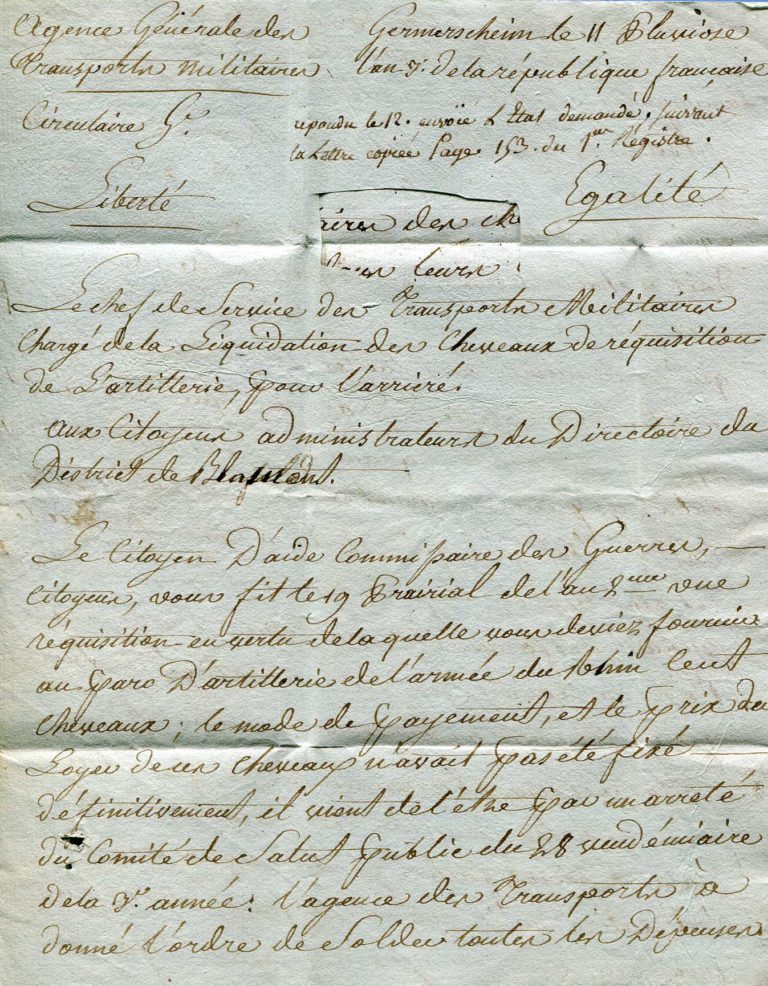 Agence Générale des
Transports militaires
Germersheim le 11 Pluviose
l'an 3e. de la république française
Circulaire Ge.
repondu le 12. envoïé L'Etat demandé, suivant
la Lettre copiée Page 153. du 1er. Régistre.
Liberté
Egalité
aires des che
leurs
Le chef de Service des Transports Militaires
Chargé de la Liquidation des Chevaux de réquisition
de L'artillerie, pour l'arriéré.
aux Citoyens administrateurs du Directoire du
District de Blamont.
Le Citoyen D'aide Commissaire des Guerres,
Citoyens, vous fit le 19 Prairial de l'an 2eme une
réquisition en vertu de laquelle vous deviez fournir
au parc D'artillerie de l'armée du Rhin Cent
Chevaux; le mode de payement, et le prix du
Loyer de ces chevaux n'avait pas été fixé
définitivement, il vient de l'être par un arreté
du Comité de Salut public du 28 vendémiaire
de la 3e. année. l'agence des Transports à
donné l'ordre de Solder toutes les Dépenses